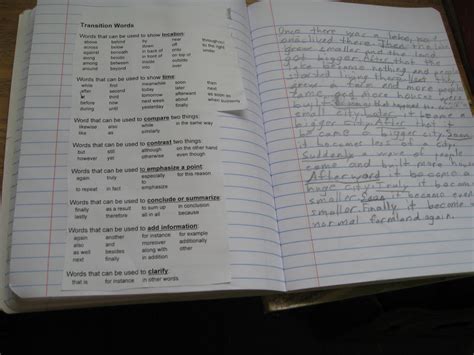 Transition Words
Words that can be used to show location:
above behind by near throughout
across below down off to the right
against beneath in back of onto under
along beside in front of on top of
among between inside outside
around beyond into over
Words that can be used to show time:
while first meanwhile soon then
after second today later next
at third tomorrow afterward as soon as
before now next week about when suddenly
during until yesterday finally
Words that can be used to compare two things:
likewise also while in the same way
like as similarly
Words that can be used to contrast two things:
but still although on the other hand
however yet otherwise even though
Words that can be used to emphasize a point:
again truly especially for this reason
to repeat in fact to emphasize
Words that can be used to conclude or summarize:
finally as a result to sum up in conclusion
lastly therefore all in all because
Words that can be used to add information:
again another for instance for example
also and moreover additionally
as well besides along with other
next finally in addition
Words that can be used to clarify:
that is for instance in other words
Once there was a lake,
lived there. Then
grew smaller and the land
got bigger. that the
people
started living there.
grow a and more people
came, and more houses were
small city. it became a
bigger city. After that it
became a bigger city. Soon
it becomes
Suddenly a of people
came and built more
Afterword it became a
huge city. truly it became
smaller. it became even
smaller. finally it become a
normal farmland again.